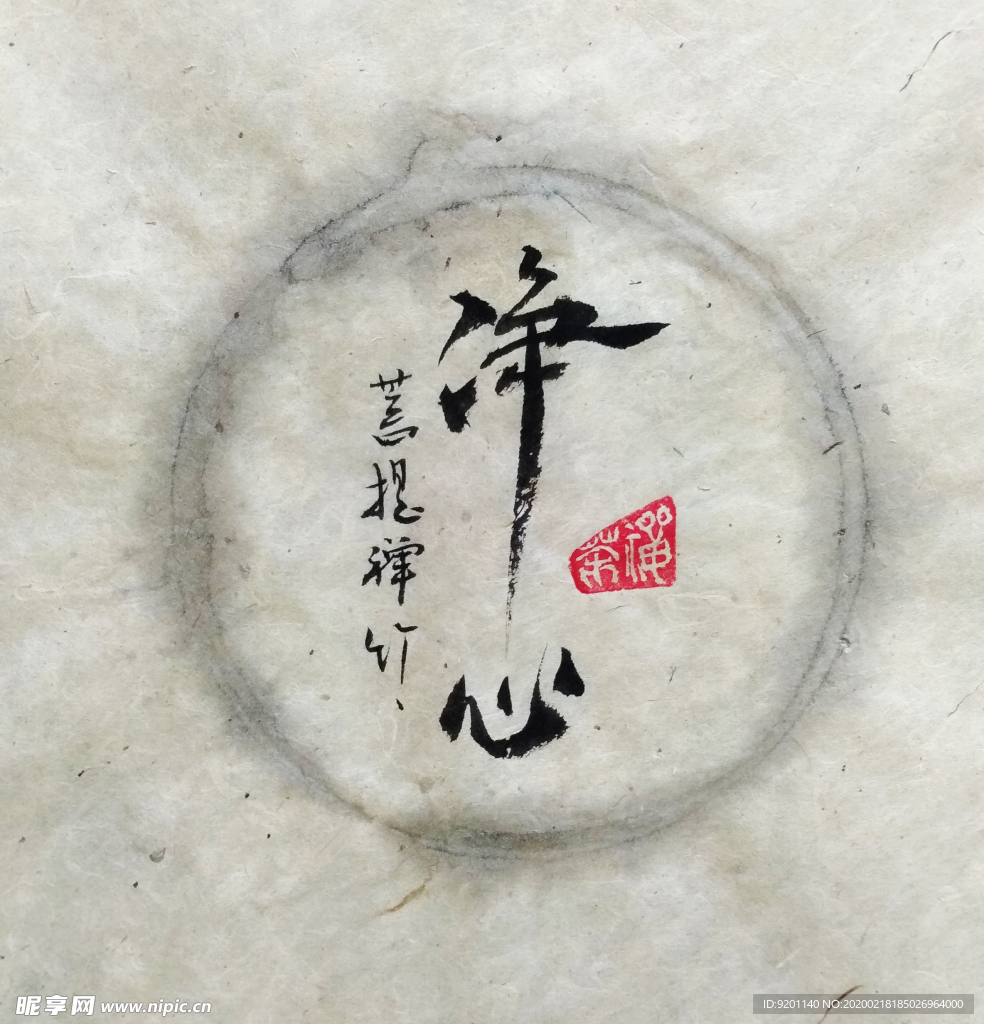 净心
菩提禅竹
禅茶
昵享网 www.nipic.cn
ID:9201140 NO:20200218185026964000